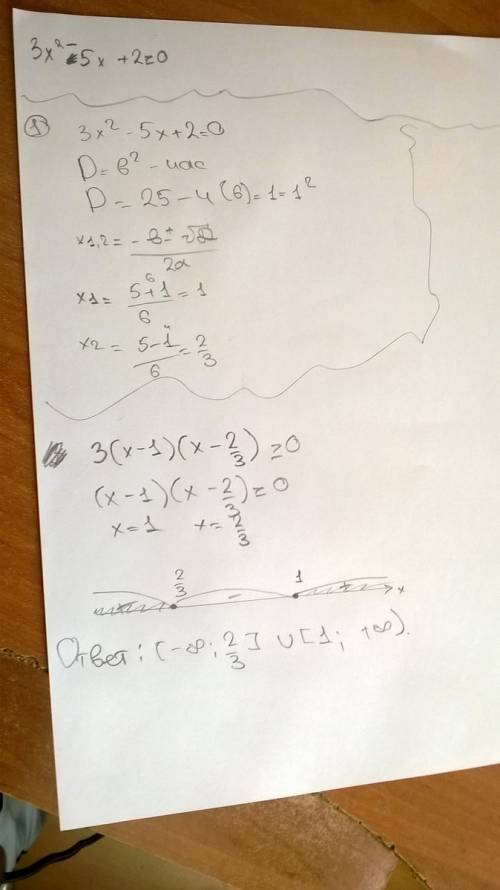 3x² - 5x + 2 ≥ 0
① 3x² - 5x + 2 = 0
D = в² - 4ас
D = 25 - 4(6) = 1 = 1²
x1,2 = (-в ± √D) / 2а
x1 = (5+1)/6 = 1
6
x2 = (5-1)/6 = 2/3
4
3(x-1)(x - 2/3) ≥ 0
(x-1)(x - 2/3) ≥ 0
x = 1 x = 2/3
2/3 1
+ - + x
Ответ: [-∞; 2/3] ∪ [1; +∞).